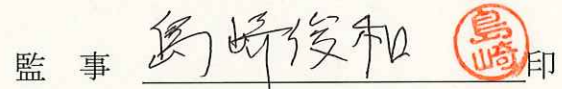 監 事 島崎俊和 島崎 印